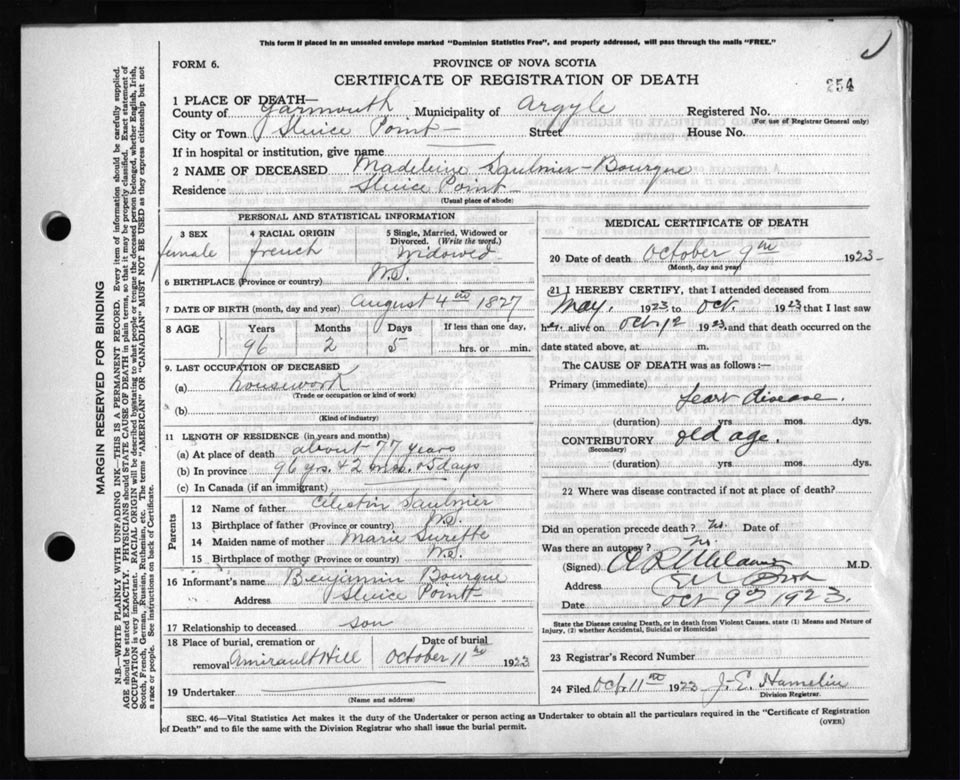 This form if placed in an unsealed envelope marked "Dominion Statistics Free", and properly addressed, will pass through the mails "FREE."
FORM 6.
PROVINCE OF NOVA SCOTIA
CERTIFICATE OF REGISTRATION OF DEATH
254
1 PLACE OF DEATH—
County of Yarmouth Municipality of Argyle Registered No.
(For use of Registrar General only)
City or Town Sluice Point Street House No.
If in hospital or institution, give name
2 NAME OF DECEASED Madeleine Saulnier-Bourque
Residence Sluice Point
(Usual place of abode)
PERSONAL AND STATISTICAL INFORMATION
3 SEX female
4 RACIAL ORIGIN french
5 Single, Married, Widowed or Divorced. (Write the word.) Widowed
6 BIRTHPLACE (Province or country) N.S.
7 DATE OF BIRTH (month, day and year) August 4th 1827
8 AGE Years Months Days If less than one day,
96 2 5 hrs. or min.
9. LAST OCCUPATION OF DECEASED
(a) housework
(Trade or occupation or kind of work)
(b)
(Kind of industry)
11 LENGTH OF RESIDENCE (in years and months)
(a) At place of death about 77 years
(b) In province 96 yrs. & 2 mos. & 5 days
(c) In Canada (if an immigrant)
Parents
12 Name of father Célestin Saulnier
13 Birthplace of father (Province or country) N.S.
14 Maiden name of mother Marie Surette
15 Birthplace of mother (Province or country) N.S.
16 Informant's name Benjamin Bourque
Address Sluice Point
17 Relationship to deceased son
18 Place of burial, cremation or removal Amirault Hill
Date of burial October 11th 1923
19 Undertaker
(Name and address)
MEDICAL CERTIFICATE OF DEATH
20 Date of death October 9th 1923
(Month, day and year)
21 I HEREBY CERTIFY, that I attended deceased from
May. 1923 to Oct. 1923 that I last saw
her alive on Oct. 1923 and that death occurred on the
date stated above, at m.
The CAUSE OF DEATH was as follows:—
Primary (immediate) heart disease.
(duration) yrs mos. dys.
CONTRIBUTORY old age.
(Secondary)
(duration) yrs mos. dys.
22 Where was disease contracted if not at place of death?
Did an operation precede death? No. Date of
Was there an autopsy? No.
(Signed) M.D.
Address
Date Oct 9th 1923.
State the Disease causing Death, or in death from Violent Causes. state (1) Means and Nature of Injury, (2) whether Accidental, Suicidal or Homicidal
23 Registrar's Record Number
24 Filed Oct. 11th 1923 J. E. Hamelin
Division Registrar.
SEC. 46—Vital Statistics Act makes it the duty of the Undertaker or person acting as Undertaker to obtain all the particulars required in the "Certificate of Registration
of Death" and to file the same with the Division Registrar who shall issue the burial permit.
(OVER)
MARGIN RESERVED FOR BINDING
N.B.—WRITE PLAINLY WITH UNFADING INK—THIS IS A PERMANENT RECORD. Every item of information should be carefully supplied.
AGE should be stated EXACTLY. PHYSICIANS should STATE CAUSE OF DEATH in plain terms, so that it may be properly classified. Exact statement of
OCCUPATION is very important. RACIAL ORIGIN will be described by stating to what people or tongue the deceased person belonged, whether English, Irish,
Scotch, French, German, Russian, Ruthenian, etc. The terms "AMERICAN" OR "CANADIAN" MUST NOT BE USED as they express citizenship but not
a race or people. See instructions on back of Certificate.